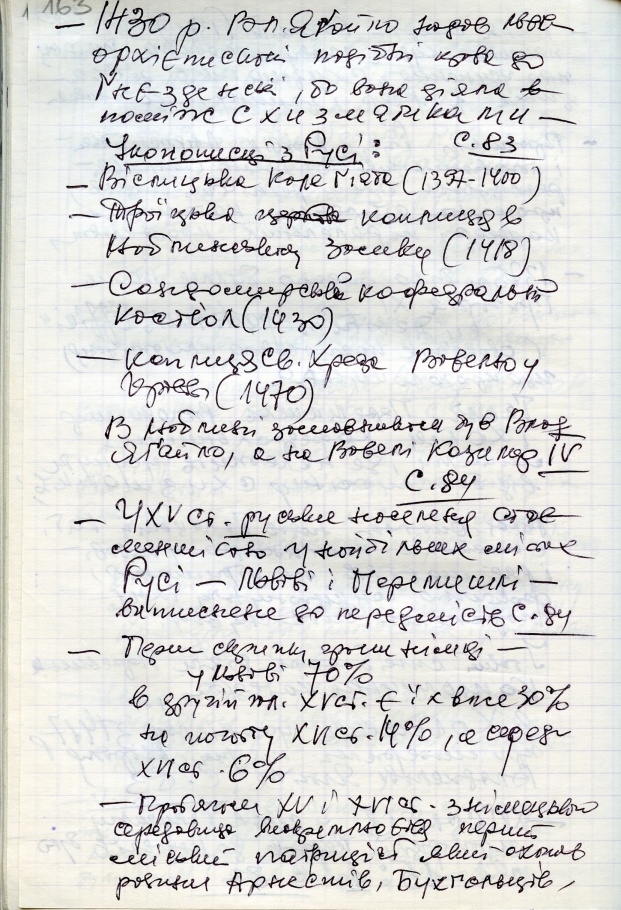 163
— 1430 р. Вл. Ягайло надав львів
архієпископії подібні права до
Гнєзденської, бо вона діяла
поміж схизматиками —
Іконописці з Русі: С. 83
— Вісліцька колегіата (1397-1400)
— Троїцька каплиця в
Люблинському замку (1418)
— Сандомирський кафедральний
костел (1430)
— каплиця св. Хреста Вавелю у
Кракові (1470)
В Люблині замовником був Влад
Ягайло, а на Вавелі Казимир IV
С. 84
— У XV ст. руське населення стає
меншістю у найбільших містах
Русі — Львові і Перемишлі —
витиснене до передмість С. 84
— Перші скрипки грали німці —
у Львові 70%
в другій пол. XV ст. є їх вже 30%
на початку XVI ст. 14%, а середи
XVI ст. 6%
— Протягом XV і XVI ст. з німецького
середовища виокремлюється перший
міський патриціат який охопив
родини Арнестів, Бухгольців,